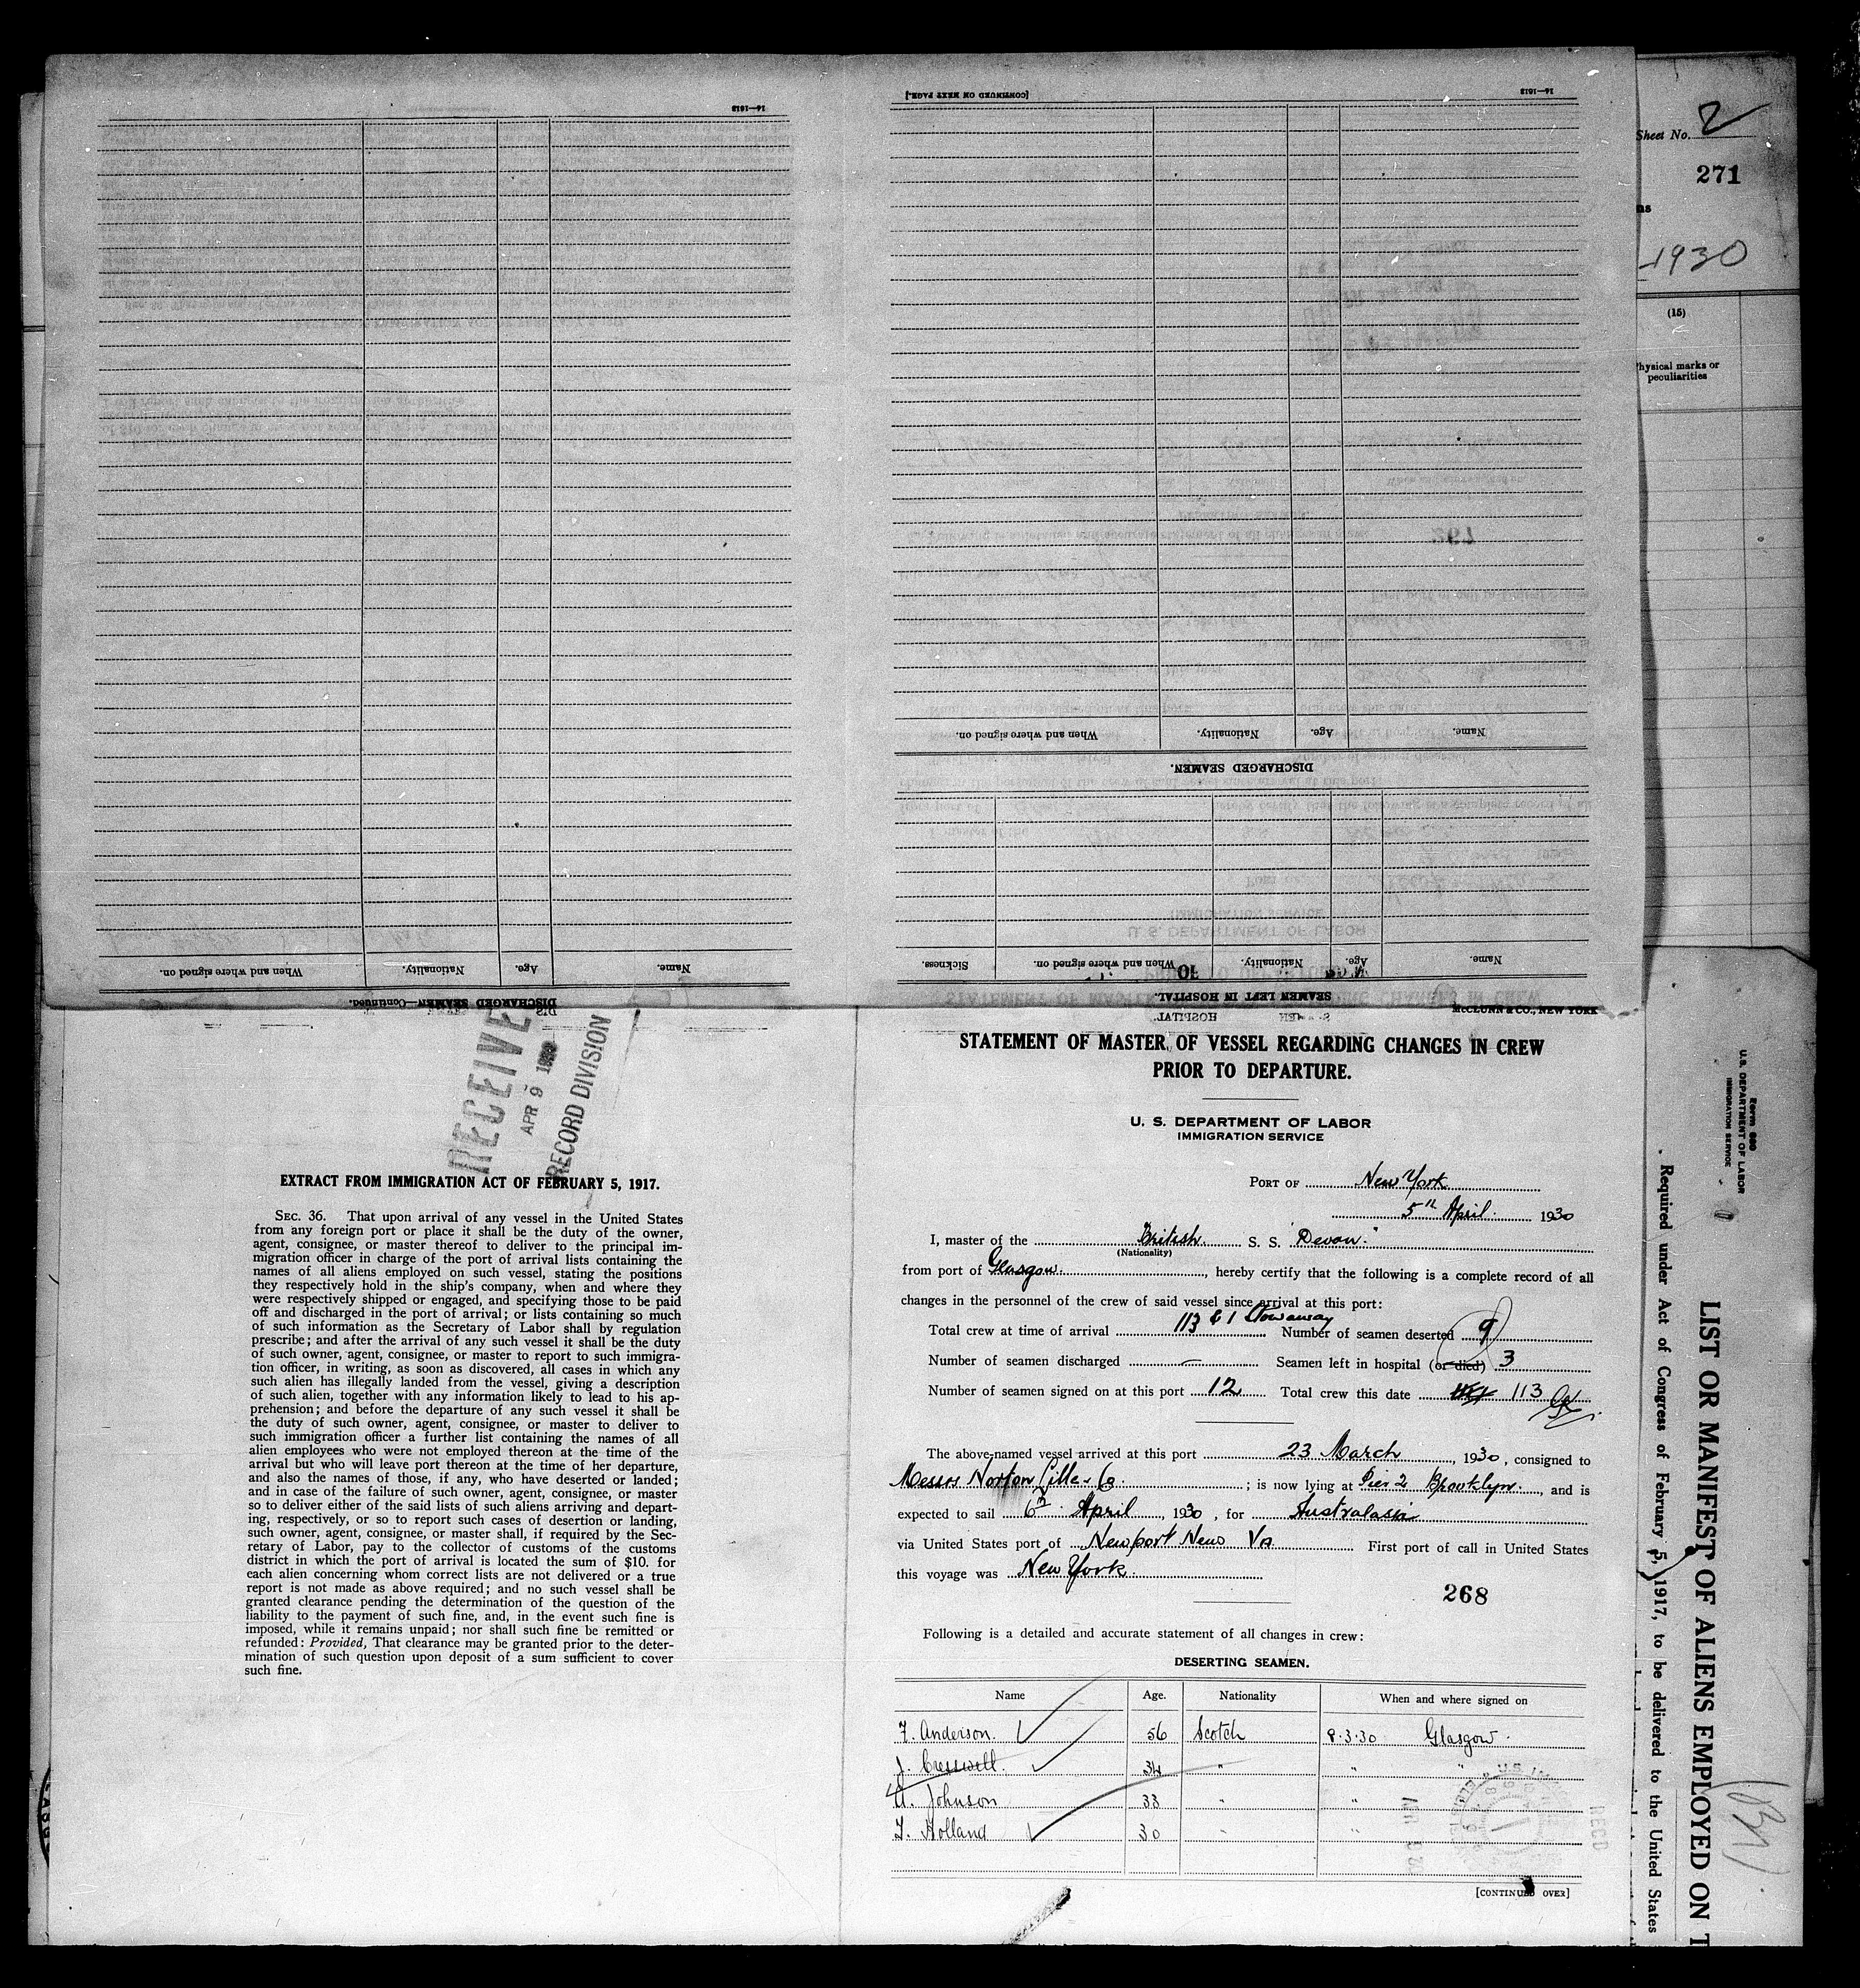 Sheet No. 2
271
ns
1930
(15)
Physical marks or
peculiarities
16—1613
[CONTINUED ON NEXT PAGE.]
16—1613
When and where signed on.
Nationality.
Age.
Name.
DISCHARGED SEAMEN.
Sickness.
When and where signed on.
Nationality.
Age.
Name.
SEAMEN LEFT IN HOSPITAL.
When and where signed on.
Nationality.
Age.
Name.
DISCHARGED SEAMEN—Continued.
McCLUNN & CO., NEW YORK
RECEIVE
APR 9
RECORD DIVISION
EXTRACT FROM IMMIGRATION ACT OF FEBRUARY 5, 1917.
SEC. 36. That upon arrival of any vessel in the United States
from any foreign port or place it shall be the duty of the owner,
agent, consignee, or master thereof to deliver to the principal im-
migration officer in charge of the port of arrival lists containing the
names of all aliens employed on such vessel, stating the positions
they respectively hold in the ship's company, when and where they
were respectively shipped or engaged, and specifying those to be paid
off and discharged in the port of arrival; or lists containing so much
of such information as the Secretary of Labor shall by regulation
prescribe; and after the arrival of any such vessel it shall be the duty
of such owner, agent, consignee, or master to report to such immigra-
tion officer, in writing, as soon as discovered, all cases in which any
such alien has illegally landed from the vessel, giving a description
of such alien, together with any information likely to lead to his ap-
prehension; and before the departure of any such vessel it shall be
the duty of such owner, agent, consignee, or master to deliver to
such immigration officer a further list containing the names of all
alien employees who were not employed thereon at the time of the
arrival but who will leave port thereon at the time of her departure,
and also the names of those, if any, who have deserted or landed;
and in case of the failure of such owner, agent, consignee, or master
so to deliver either of the said lists of such aliens arriving and depart-
ing, respectively, or so to report such cases of desertion or landing,
such owner, agent, consignee, or master shall, if required by the Sec-
retary of Labor, pay to the collector of customs of the customs
district in which the port of arrival is located the sum of $10. for
each alien concerning whom correct lists are not delivered or a true
report is not made as above required; and no such vessel shall be
granted clearance pending the determination of the question of the
liability to the payment of such fine, and, in the event such fine is
imposed, while it remains unpaid; nor shall such fine be remitted or
refunded: Provided, That clearance may be granted prior to the deter-
mination of such question upon deposit of a sum sufficient to cover
such fine.
STATEMENT OF MASTER OF VESSEL REGARDING CHANGES IN CREW
PRIOR TO DEPARTURE.
U. S. DEPARTMENT OF LABOR
IMMIGRATION SERVICE
PORT OF New York
5th April. 1930
I, master of the British. S. S. "Devon."
(Nationality)
from port of Glasgow., hereby certify that the following is a complete record of all
changes in the personnel of the crew of said vessel since arrival at this port:
Total crew at time of arrival 113 & 1 Stowaway Number of seamen deserted 9
Number of seamen discharged — Seamen left in hospital (or died) 3
Number of seamen signed on at this port 12 Total crew this date 113
The above-named vessel arrived at this port 23 March, 1930, consigned to
Messrs Norton Lilly & Co.; is now lying at Pier 2 Brooklyn., and is
expected to sail 6th April, 1930, for Australasia
via United States port of Newport News Va First port of call in United States
this voyage was New York.
268
Following is a detailed and accurate statement of all changes in crew:
DESERTING SEAMEN.
Name Age. Nationality When and where signed on
F. Anderson. 56 Scotch 8.3.30 Glasgow.
J. Cresswell. 34 " " "
A. Johnson 33 " "
T. Holland 30 " "
[CONTINUED OVER]
Form 680
U.S. DEPARTMENT OF LABOR
IMMIGRATION SERVICE
LIST OR MANIFEST OF ALIENS EMPLOYED ON T
Required under Act of Congress of February 5, 1917, to be delivered to the United States